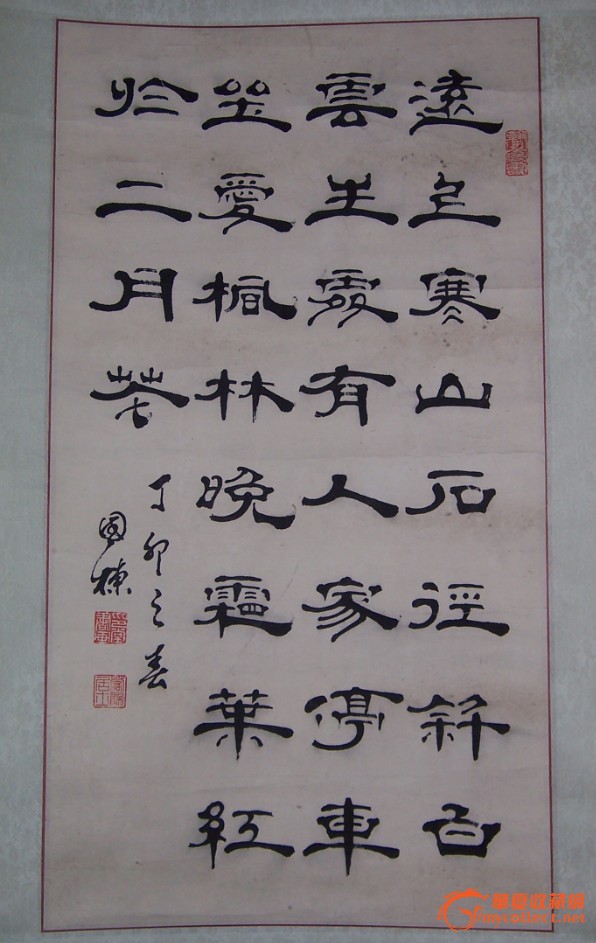 遠上寒山石徑斜白
雲生處有人家停車
坐愛楓林晚霜葉紅
於二月花
丁卯之春
國棟
華夏收藏網
mycollect.net